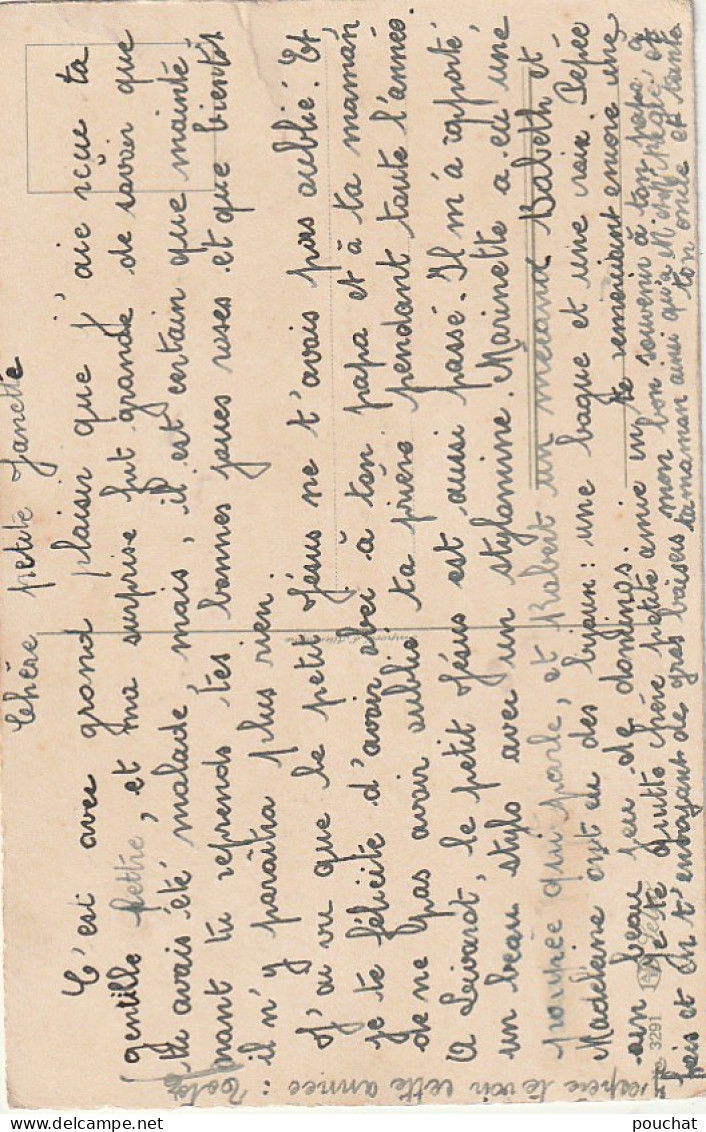 Chère petite Janette
C'est avec grand plaisir que j'aie reçue ta
gentille lettre, et ma surprise fut grande de savoir que
tu avais été malade mais, il est certain que mainte
nant tu reprends tes bonnes joues roses et que bientôt
il n'y paraîtra plus rien.
J'ai vu que le petit Jésus ne t'avais pas oublié. Et
je te félicite d'avoir obei à ton papa et à ta maman
de ne pas avoir oublié ta prière pendant toute l'année.
A Livarot, le petit Jésus est aussi passé. Il m'a apporté
un beau stylo avec un stylomine. Marinette a eu une
poupée qui parle, et Robert un mécano Babeth et
Madeleine ont eu des bijoux : une bague et une croix. Pépée
un beau jeu de dominos.
Je te quitte chère petite amie en te remerciant encore une
fois et en t'envoyant de gros baisers mon bon souvenir à ton papa
ta maman ainsi qu'à et
ton oncle et tante
espère te voir cette année :
3291
pouchat